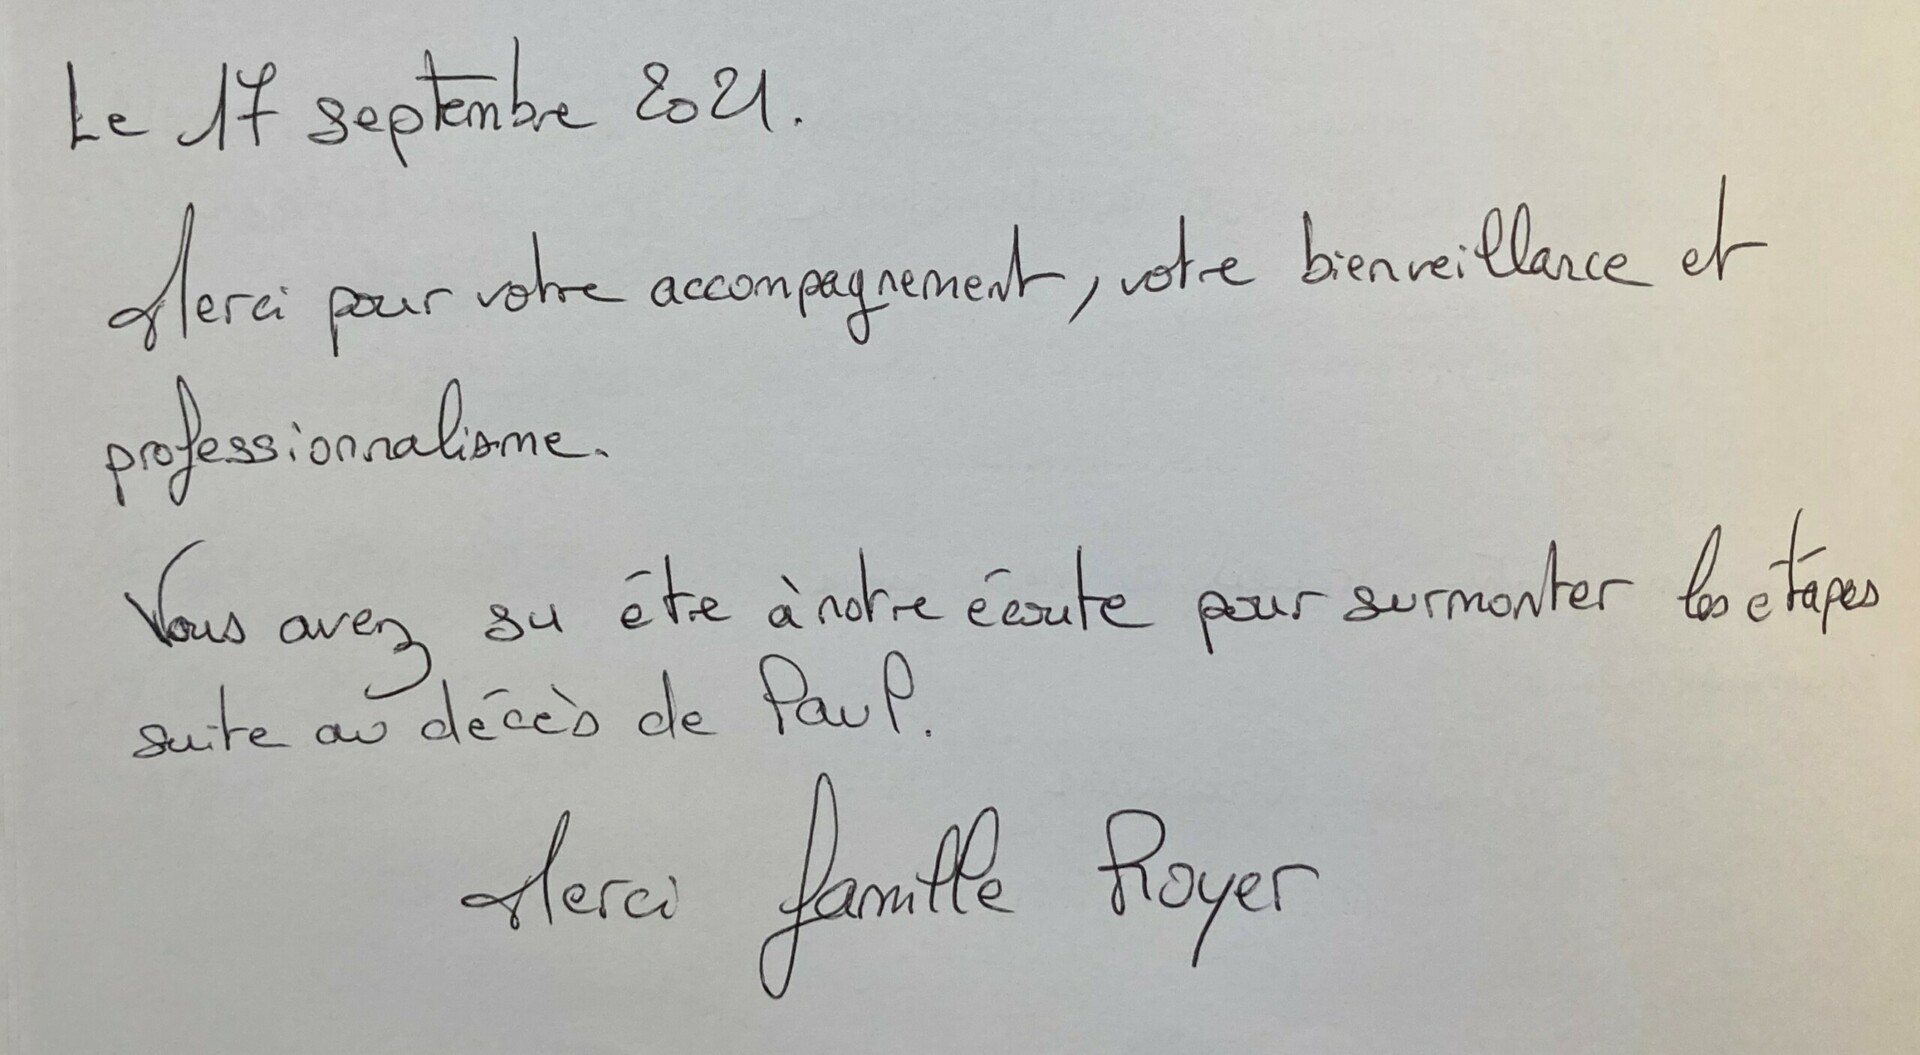 Le 17 septembre 2021.
Merci pour votre accompagnement, votre bienveillance et
professionnalisme.
Vous avez su être à notre écoute pour surmonter les étapes
suite au décès de Paul.
Merci famille Royer